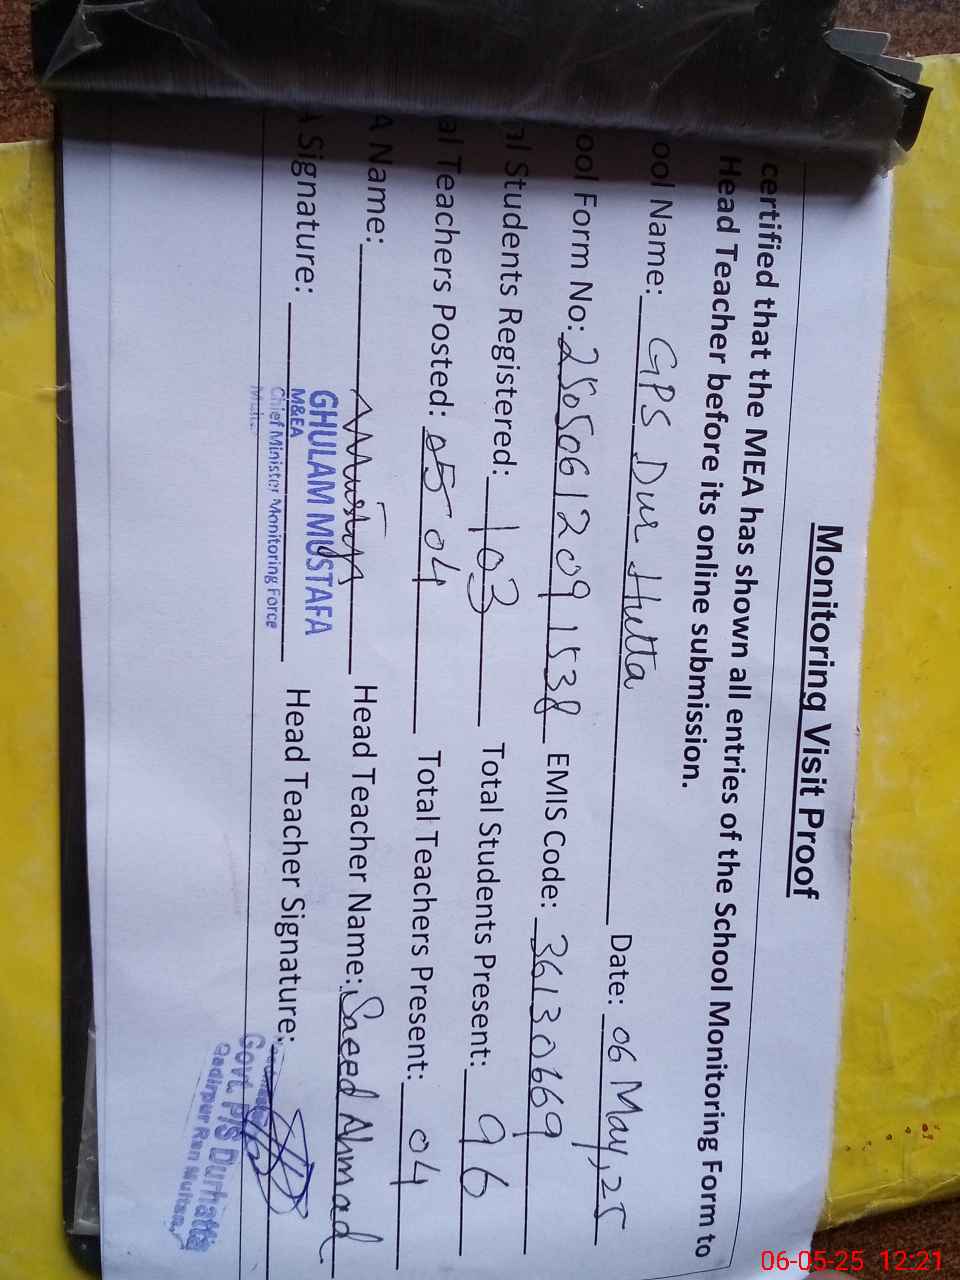 Monitoring Visit Proof
certified that the MEA has shown all entries of the School Monitoring Form to
Head Teacher before its online submission.
ool Name: GPS Dur Hutta Date: 06 May, 25
ool Form No: 25050612091538 EMIS Code: 36130669
al Students Registered: 103 Total Students Present: 96
al Teachers Posted: 04 Total Teachers Present: 04
A Name: Head Teacher Name: Saeed Ahmad
A Signature: Head Teacher Signature:
GHULAM MUSTAFA
M&EA
Chief Minister Monitoring Force
Govt. P/S Durhatta
Qadirpur Ran Multan
06-05-25 12:21